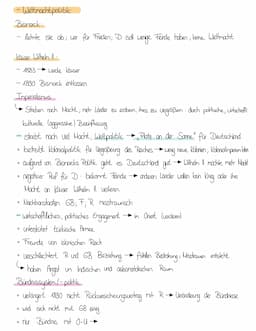 - Weltmachtpolitik
Bismarck
- lehnte sie ab; war für Frieden; D soll wenige Feinde haben, keine Weltmacht
Kaiser Wilhelm II
- 1888 → wurde Kaiser
- 1890 Bismarck entlassen
Imperialismus
↳ Streben nach Macht; mehr Länder zu erobern, Reich zu vergrößern durch politische, wirtschaftl.
kulturelle (aggressive) Beeinflussung
- strebt nach viel Macht; Weltpolitik → "Platz an der Sonne" für Deutschland
- betreibt Kolonialpolitik für Vergrößerung des Reiches → wenig neue Kolonien,
- aufgrund von Bismarcks Politik geht es Deutschland gut → Wilhelm II möchte mehr Macht
- negativer Ruf für D: bekommt Feinde → anderen Länder wollen kein Krieg oder ihre
Macht an Kaiser Wilhelm II verlieren
- Nachbarstaaten GB, F, R misstrauisch
- wirtschaftliches, politisches Engagement → in Orient (
- unterstützt türkische Armee
- Freunde von islamischen Reich
- verschlechtert R und GB Beziehung → Beziehung; Misstrauen entsteht
↳ haben Angst um Indischen und asiatischen Raum
Bündnissystem/-politik
- verlängert 1890 nicht Rückversicherungsvertrag mit R → Veränderung der Bündnisse
- will sich nicht mit GB einig
- nur Bündnis mit Ö-U →